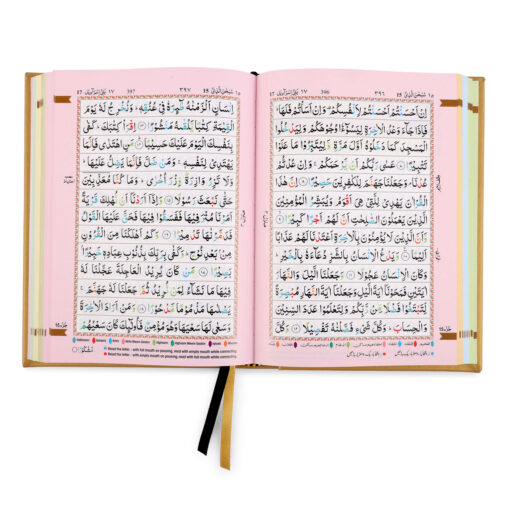 ١٧ بَنِیْۤ اِسْرَآءِیْل 17 396 ٣٩٦ سُبْحٰنَ الَّذِیْۤ ١٥ 15
اِنْ اَحْسَنْتُمْ اَحْسَنْتُمْ لِاَنْفُسِكُمْ وَاِنْ اَسَاْتُمْ فَلَهَا
فَاِذَا جَآءَ وَعْدُ الْاٰخِرَةِ لِیَسُوْٓءٗا وُجُوْهَكُمْ وَلِیَدْخُلُوا
الْمَسْجِدَ كَمَا دَخَلُوْهُ اَوَّلَ مَرَّةٍ وَّلِیُتَبِّرُوْا مَا عَلَوْا
تَتْبِیْرًا ۷ عَسٰی رَبُّكُمْ اَنْ یَّرْحَمَكُمْ وَاِنْ عُدْتُّمْ
عُدْنَا وَجَعَلْنَا جَهَنَّمَ لِلْكٰفِرِیْنَ حَصِیْرًا ۸ اِنَّ هٰذَا
الْقُرْاٰنَ یَهْدِیْ لِلَّتِیْ هِیَ اَقْوَمُ وَیُبَشِّرُ الْمُؤْمِنِیْنَ
الَّذِیْنَ یَعْمَلُوْنَ الصّٰلِحٰتِ اَنَّ لَهُمْ اَجْرًا كَبِیْرًا ۹ وَّ
اَنَّ الَّذِیْنَ لَا یُؤْمِنُوْنَ بِالْاٰخِرَةِ اَعْتَدْنَا لَهُمْ عَذَابًا
اَلِیْمًا ۱۰ وَیَدْعُ الْاِنْسَانُ بِالشَّرِّ دُعَآءَهٗ بِالْخَیْرِ
وَكَانَ الْاِنْسَانُ عَجُوْلًا ۱۱ وَجَعَلْنَا الَّیْلَ وَالنَّهَارَ
اٰیَتَیْنِ فَمَحَوْنَاۤ اٰیَةَ الَّیْلِ وَجَعَلْنَاۤ اٰیَةَ النَّهَارِ مُبْصِرَةً
لِّتَبْتَغُوْا فَضْلًا مِّنْ رَّبِّكُمْ وَلِتَعْلَمُوْا عَدَدَ السِّنِیْنَ
وَالْحِسَابَ وَكُلَّ شَیْءٍ فَصَّلْنٰهُ تَفْصِیْلًا ۱۲ وَكُلَّ
١٧ بَنِیْۤ اِسْرَآءِیْل 17 397 ٣٩٧ سُبْحٰنَ الَّذِیْۤ ١٥ 15
اِنْسَانٍ اَلْزَمْنٰهُ طٰٓئِرَهٗ فِیْ عُنُقِهٖ وَنُخْرِجُ لَهٗ یَوْمَ
الْقِیٰمَةِ كِتٰبًا یَّلْقٰىهُ مَنْشُوْرًا ۱۳ اِقْرَاْ كِتٰبَكَ كَفٰی
بِنَفْسِكَ الْیَوْمَ عَلَیْكَ حَسِیْبًا ۱۴ مَنِ اهْتَدٰی فَاِنَّمَا
یَهْتَدِیْ لِنَفْسِهٖ وَمَنْ ضَلَّ فَاِنَّمَا یَضِلُّ عَلَیْهَا
وَلَا تَزِرُ وَازِرَةٌ وِّزْرَ اُخْرٰی وَمَا كُنَّا مُعَذِّبِیْنَ
حَتّٰی نَبْعَثَ رَسُوْلًا ۱۵ وَاِذَاۤ اَرَدْنَاۤ اَنْ نُّهْلِكَ قَرْیَةً
اَمَرْنَا مُتْرَفِیْهَا فَفَسَقُوْا فِیْهَا فَحَقَّ عَلَیْهَا الْقَوْلُ
فَدَمَّرْنٰهَا تَدْمِیْرًا ۱۶ وَكَمْ اَهْلَكْنَا مِنَ الْقُرُوْنِ
مِنْ بَعْدِ نُوْحٍ وَكَفٰی بِرَبِّكَ بِذُنُوْبِ عِبَادِهٖ خَبِیْرًا
بَصِیْرًا ۱۷ مَنْ كَانَ یُرِیْدُ الْعَاجِلَةَ عَجَّلْنَا لَهٗ
فِیْهَا مَا نَشَآءُ لِمَنْ نُّرِیْدُ ثُمَّ جَعَلْنَا لَهٗ جَهَنَّمَ
یَصْلٰىهَا مَذْمُوْمًا مَّدْحُوْرًا ۱۸ وَمَنْ اَرَادَ الْاٰخِرَةَ
وَسَعٰی لَهَا سَعْیَهَا وَهُوَ مُؤْمِنٌ فَاُولٰٓئِكَ كَانَ سَعْیُهُمْ
مَّشْكُوْرًا